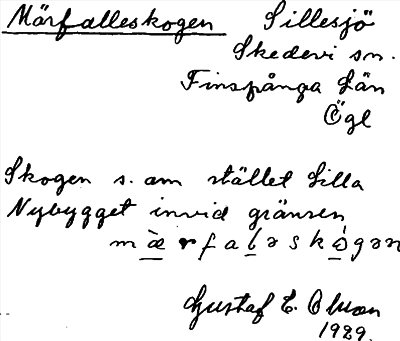 Märfalleskogen Sillesjö
Skedevi sn.
Finspånga Län
Ögl
Skogen s. om stället Lilla
Nybygget invid gränsen
mæ̀rfaləskó̤gən
Gustaf E. Olson
1929.